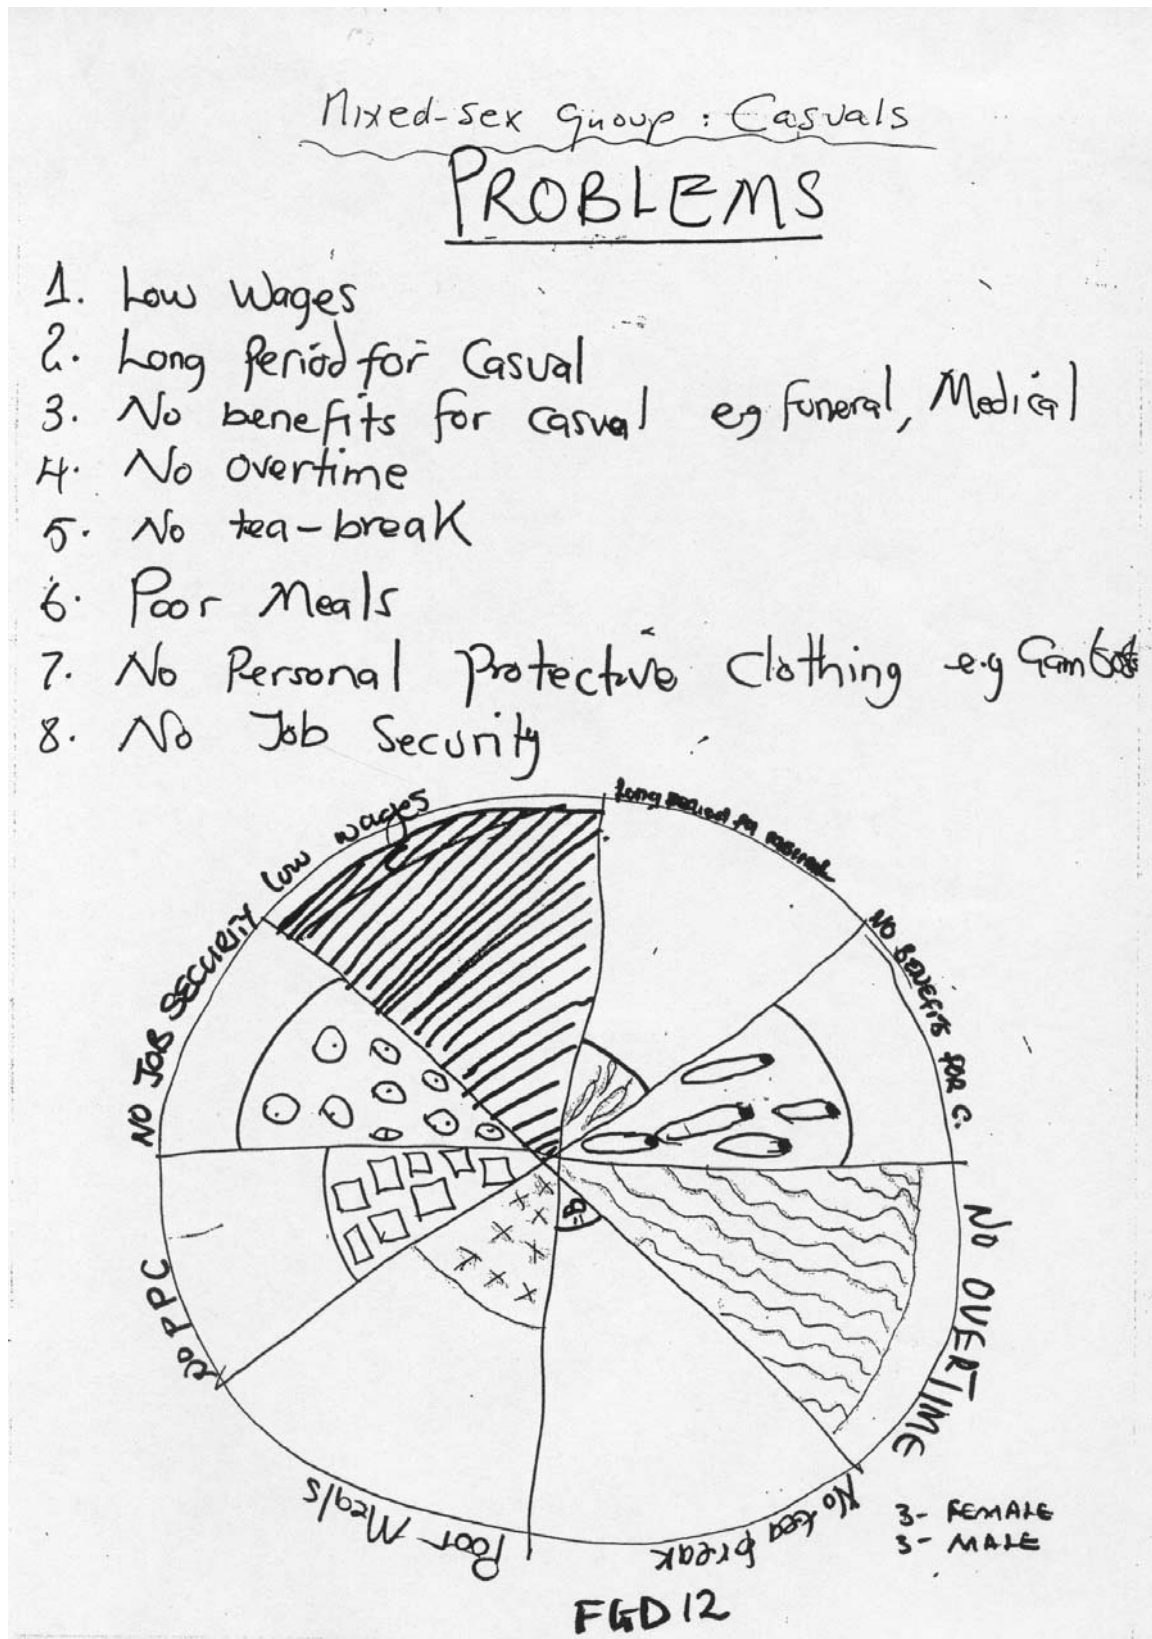 Mixed-sex Group : Casuals
PROBLEMS
1. Low Wages
2. Long Period for Casual
3. No benefits for casual eg Funeral, Medical
4. No overtime
5. No tea-break
6. Poor Meals
7. No Personal Protective Clothing e.g
8. No Job Security
Low wages
Long period
NO BENEFITS FOR C.
NO OVERTIME
No tea break
Poor Meals
NO PPC
NO JOB SECURITY
3- FEMALE
3- MALE
FGD 12